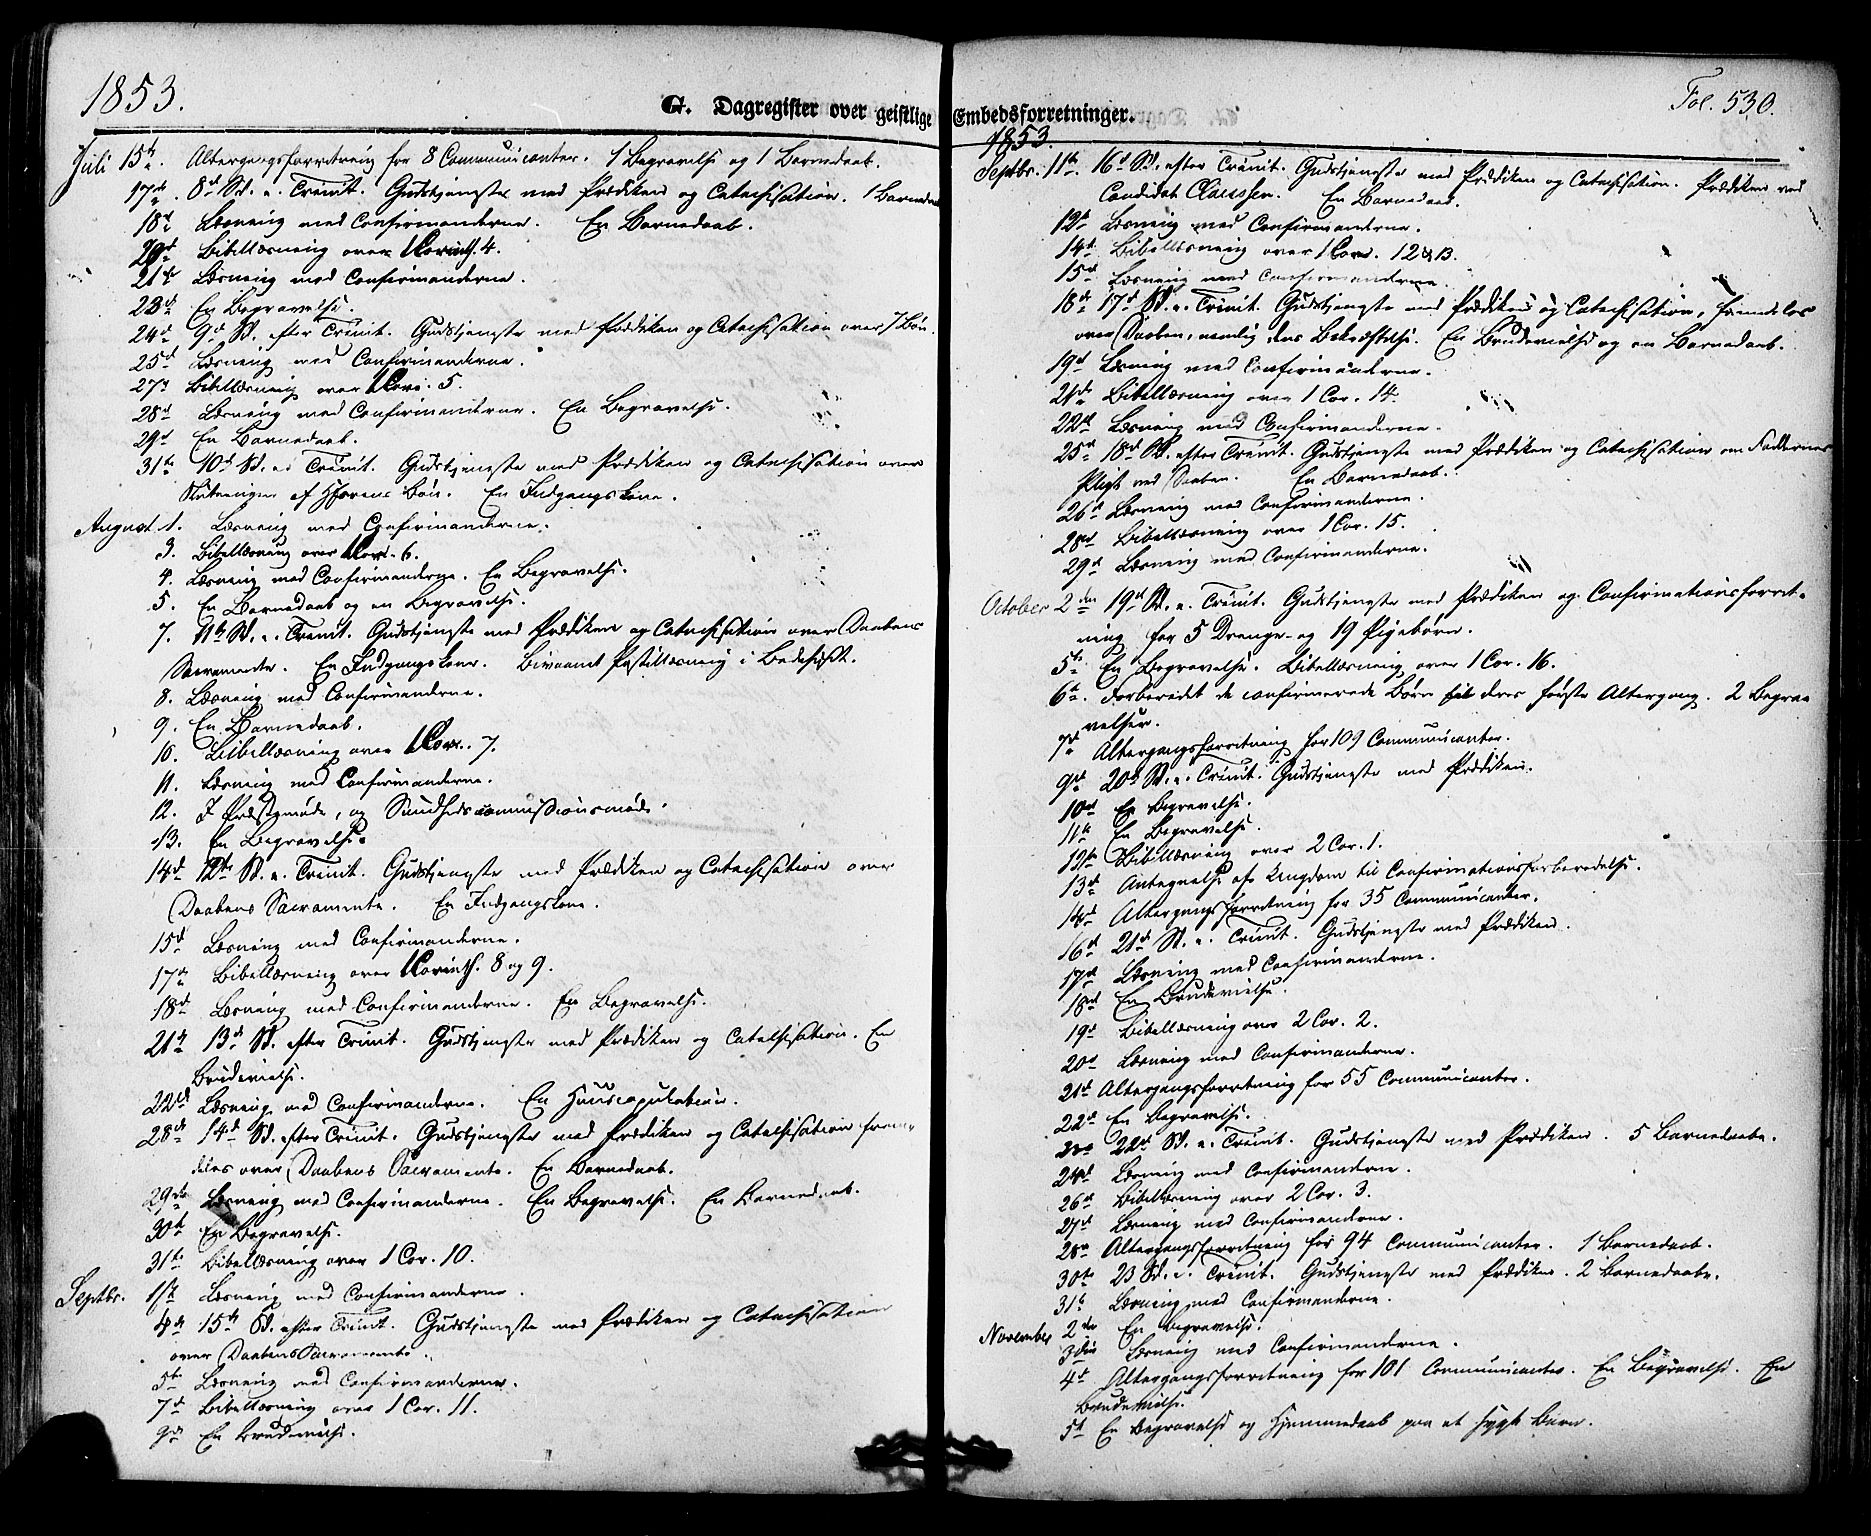 1853.
G. Dagregister over geistlige Embedsforretninger.
Fol. 530.
Juli 15de. Altergangsforretning for 8 Communicanter. 1 Begravelse og 1 Barnedaab.
17de. 8de Sd. e. Trinit. Gudstjeneste med Prædiken og Catechisation. 1 Barnedaab
18de Læsning med Confirmanderne. En Barnedaab.
20de Bibellæsning over 1 Corinth. 4.
21de Læsning med Confirmanderne.
23de En Begravelse.
24de 9de Sd. efter Trinit. Gudstjeneste med Prædiken og Catechisation over 7 Bøn.
25de Læsning med Confirmanderne.
27de Bibellæsning over 1 Cor. 5.
28de Læsning med Confirmanderne. En Begravelse.
29de En Barnedaab.
31te 10de Sd. e. Trinit. Gudstjeneste med Prædiken og Catechisation over
Slutningen af Herrens Bøn. En Indgangskone.
August 1. Læsning med Confirmanderne.
3. Bibellæsning over 1 Cor. 6.
4. Læsning med Confirmanderne. En Begravelse.
5. En Barnedaab og en Begravelse.
7. 11te Sd. e. Trinit. Gudstjeneste med Prædiken og Catechisation over Daabens
Sacramente. En Indgangskone. Bivaanet Postillæsning i Bedehuset.
8. Læsning med Confirmanderne.
9. En Barnedaab.
10. Bibellæsning over 1 Cor. 7.
11. Læsning med Confirmanderne.
12. I Præstemøde, og Sundhedscommissionsmøde.
13. En Begravelse.
14de 12te Sd. e. Trinit. Gudstjeneste med Prædiken og Catechisation over
Daabens Sacramente. En Indgangskone.
15de Læsning med Confirmanderne.
17de Bibellæsning over 1 Corinth. 8 og 9.
18de Læsning med Confirmanderne. En Begravelse.
21de 13de Sd. efter Trinit. Gudstjeneste med Prædiken og Catechisation. En
Brudevielse.
22de Læsning med Confirmanderne. En Huuscopulation.
28de 14de Sd. efter Trinit. Gudstjeneste med Prædiken og Catechisation frem-
deles over Daabens Sacramente. En Barnedaab.
29de Læsning med Confirmanderne. En Begravelse. En Barnedaab.
30te En Begravelse.
31te Bibellæsning over 1 Cor. 10.
Septbr. 1ste Læsning med Confirmanderne.
4de 15de Sd. efter Trinit. Gudstjeneste med Prædiken og Catechisation
over Daabens Sacramente.
5te Læsning med Confirmanderne.
7de Bibellæsning over 1 Cor. 11.
9de En Brudevielse.
1853.
Septbr. 11te. 16de Sd. efter Trinit. Gudstjeneste med Prædiken og Catechisation. Prædiken ved
Candidat Claussen. En Barnedaab.
12te Læsning med Confirmanderne.
14de Bibellæsning over 1 Cor. 12 & 13.
15de Læsning med Confirmanderne.
18de 17de Sd. e. Trinit. Gudstjeneste med Prædiken og Catechisation, fremdeles
over Daaben, nemlig dens Bekræftelse. En Brudevielse og en Barnedaab.
19de Læsning med Confirmanderne.
21de Bibellæsning over 1 Cor. 14.
22de Læsning med Confirmanderne.
25de 18de Sd. efter Trinit. Gudstjeneste med Prædiken og Catechisation om Faddernes
Pligt ved Daaben. En Barnedaab.
26de Læsning med Confirmanderne.
28de Bibellæsning over 1 Cor. 15.
29de Læsning med Confirmanderne.
October 2den 19de Sd. e. Trinit. Gudstjeneste med Prædiken og Confirmationsforret-
ning for 5 Drenge- og 19 Pigebørn.
5te En Begravelse. Bibellæsning over 1 Cor. 16.
6te. Forberedet de confirmerede Børn til deres første Altergang. 2 Begra-
velser.
7de Altergangsforretning for 109 Communicanter.
9de 20de Sd. e. Trinit. Gudstjeneste med Prædiken.
10de En Begravelse.
11te En Begravelse.
12te Bibellæsning over 2 Cor. 1.
13de Antegnelse af Ungdom til Confirmationsforberedelse.
14de Altergangsforretning for 35 Communicanter.
16de 21de Sd. e. Trinit. Gudstjeneste med Prædiken.
17de Læsning med Confirmanderne.
18de En Brudevielse.
19de Bibellæsning over 2 Cor. 2.
20de Læsning med Confirmanderne.
21de Altergangsforretning for 55 Communicanter.
22de En Begravelse.
23de 22de Sd. e. Trinit. Gudstjeneste med Prædiken. 5 Barnedaabe.
24de Læsning med Confirmanderne.
26de Bibellæsning over 2 Cor. 3.
27de Læsning med Confirmanderne.
28de Altergangsforretning for 94 Communicanter. 1 Barnedaab.
30te 23 Sd. e. Trinit. Gudstjeneste med Prædiken. 2 Barnedaabe.
31te Læsning med Confirmanderne.
November 2den En Begravelse.
3die Læsning med Confirmanderne.
4de Altergangsforretning for 101 Communicanter. En Begravelse. En
Brudevielse.
5te En Begravelse og Hjemmedaab paa et sygt Barn.